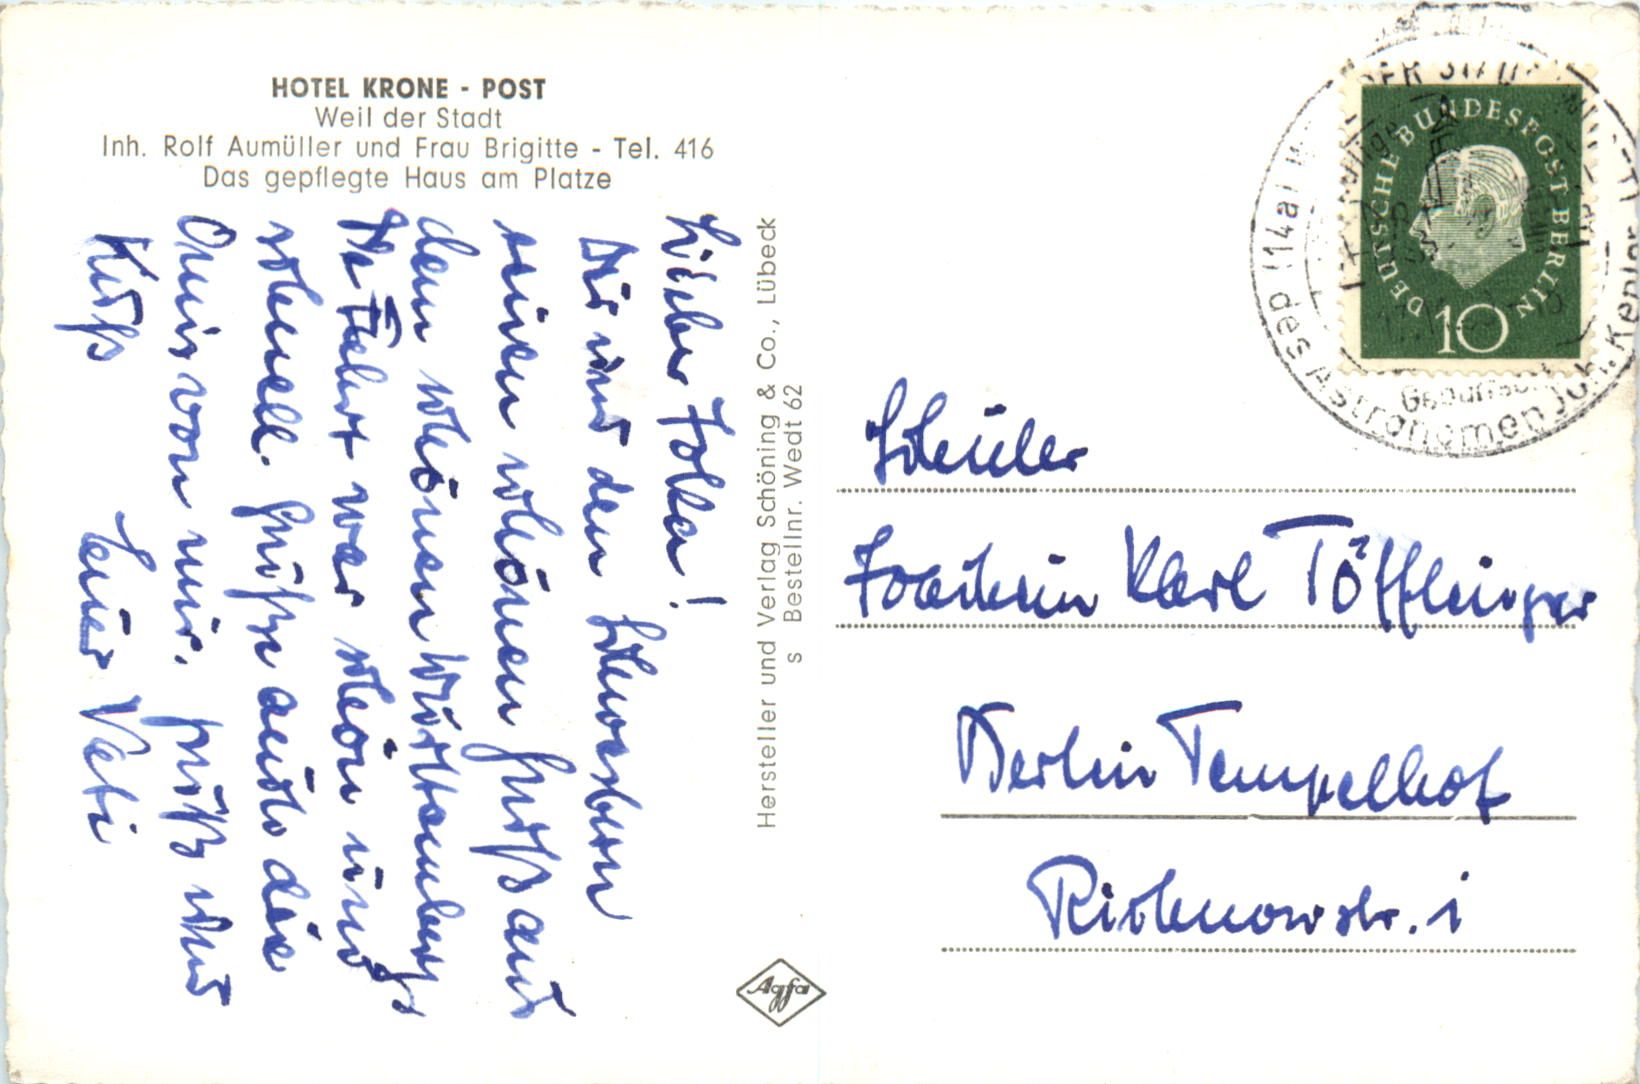 HOTEL KRONE - POST
Weil der Stadt
Inh. Rolf Aumüller und Frau Brigitte - Tel. 416
Das gepflegte Haus am Platze
Lieber Joken!
Dir und den
einen schönen Gruß aus
dem schönen Württemberg.
Die Fahrt war schön und
schnell. Grüße auch die
Omis von mir. Gruß und
Kuß Deier Vati
Hersteller und Verlag Schöning & Co., Lübeck
s Bestellnr. Wedt 62
Agfa
DEUTSCHE BUNDESPOST BERLIN
10
des Astronomen Joh. Kepler
Schüler
Joachim Karl Töfflinger
Berlin Tempelhof
Richnowstr. 1